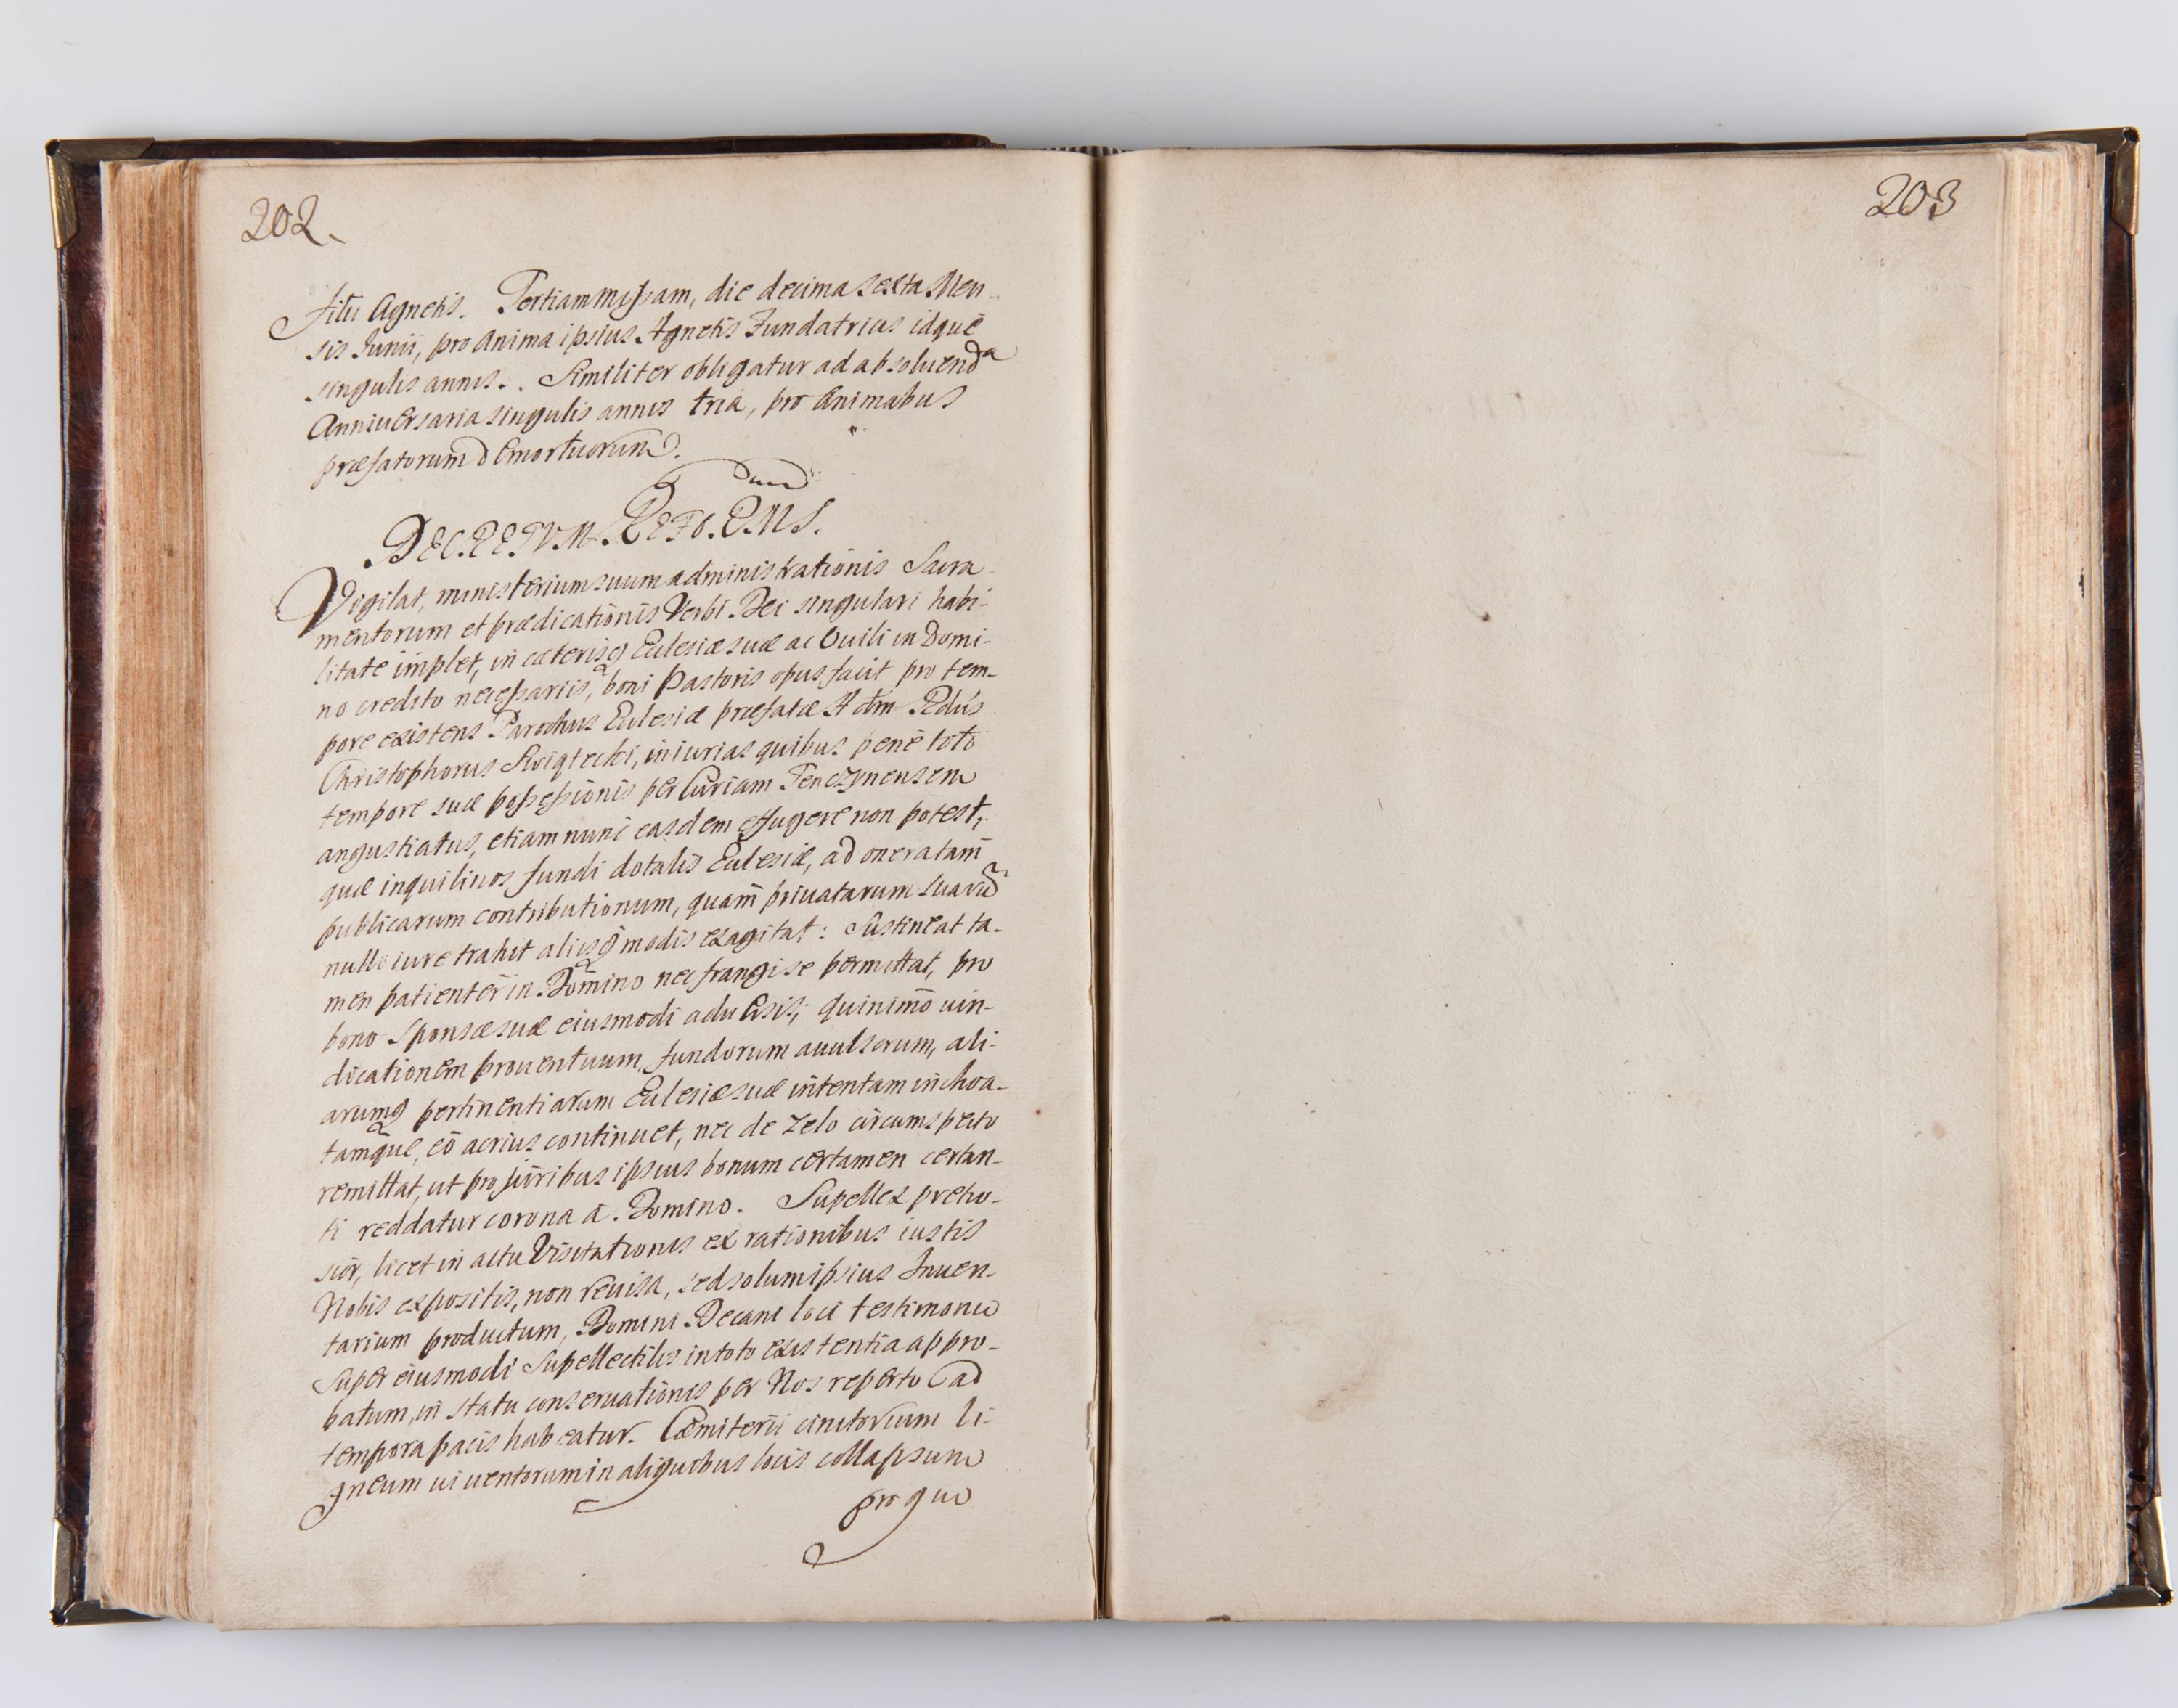 202.
filii Agnetis. Tertiam missam, die decima sexta Men-
sis Junii, pro Anima ipsius Agnetis Fundatricis idque
singulis annis. Similiter obligatur ad absoluenda
Anniuersaria singulis annis tria, pro Animabus
præfatorum demortuorum.
DECRETVM REFORMS.
Vigilat, ministerium suum administrationis Sacra-
mentorum et prædicationis Verbi Dei singulari habi-
litate implet, in cæterisq Ecclesiæ suæ ac Ouili in Domi-
no credito necessariis, boni Pastoris opus facit pro tem-
pore existens Parochus Ecclesiæ præfatæ Adm Rdus
Christophorus Swiątecki, iniurias quibus penè toto
tempore suæ possessionis per Curiam Tenczynensem
angustiatus, etiam nunc easdem effugere non potest,
quæ inquilinos fundi dotalis Ecclesiæ, ad oneratam
publicarum contributionum, quam priuatarum suaru
nullo iure trahit aliisq modis exagitat: Sustineat ta-
men patienter in Domino nec frangi se permittat, pro
bono Sponsæ suæ eiusmodi aduersis; quinimo uin-
dicationem prouentuum, fundorum auulsorum, ali-
arumq pertinentiarum Ecclesiæ suæ intentam inchoa-
tamque, eò acrius continuet, nec de zelo circumspecto
remittat, ut pro juribus ipsius bonum certamen certan-
ti reddatur corona à Domino. Supellex pretio-
sior, licet in actu Visitationis ex rationibus iustis
Nobis expositis, non reuisa, sed solum ipsius Inuen-
tarium productum, Domini Decani loci testimonio
super eiusmodi Supellectilis in toto existentia appro-
batum, in statu conseruationis per Nos reperto ad
tempora pacis habeatur. Cæmiterii cinctorium li-
gneum ui uentorum in aliquibus locis collapsum
pro quo
203